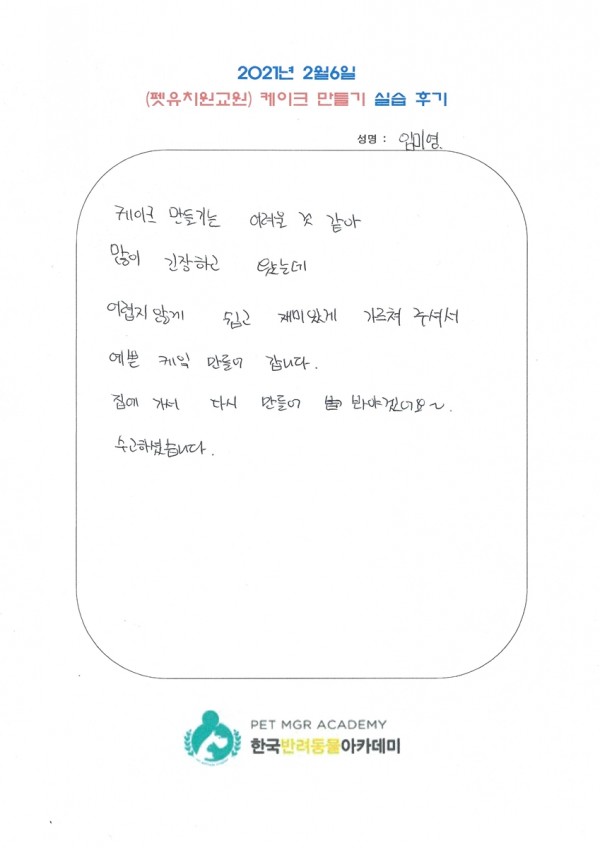 2021년 2월6일
(펫유치원교원) 케이크 만들기 실습 후기
성명 : 임미영.
케이크 만들기는 어려울 것 같아
많이 긴장하고 왔는데
어렵지않게 쉽고 재미있게 가르쳐 주셔서
예쁜 케잌 만들어 갑니다.
집에 가서 다시 만들어 봐야겠어요~.
수고하셨습니다.
PET MGR ACADEMY
한국반려동물아카데미